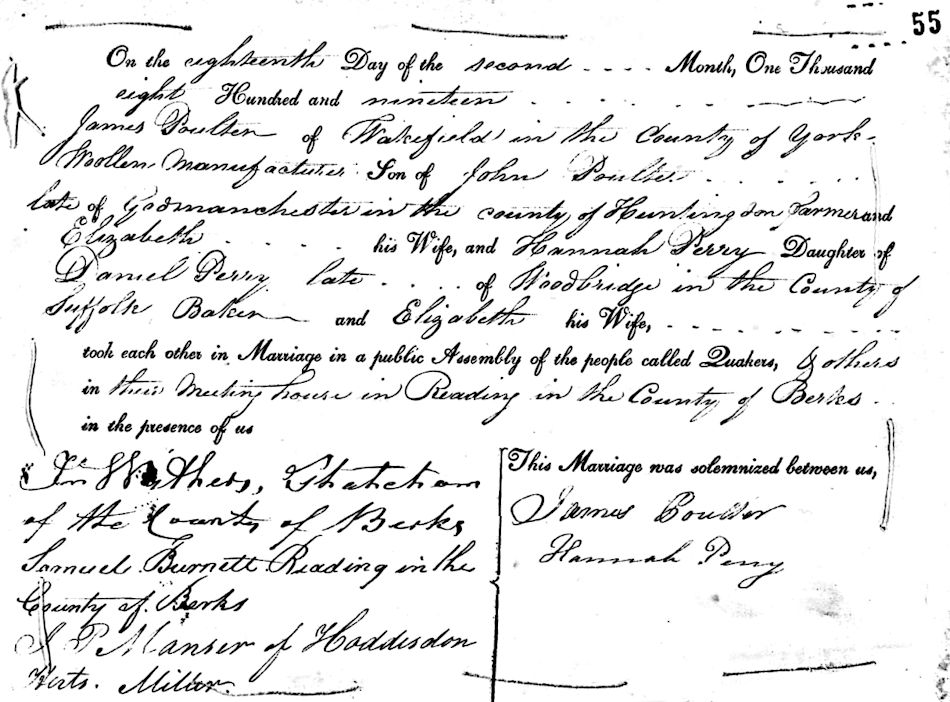 55
On the eighteenth Day of the second .... Month, One Thousand
eight Hundred and nineteen
James Poulter of Wakefield in the County of York
Woollen Manufacturer Son of John Poulter
late of Godmanchester in the county of Huntingdon Farmer and
Elizabeth .... his Wife, and Hannah Perry Daughter of
Daniel Perry late .... of Woodbridge in the County of
Suffolk Baker and Elizabeth his Wife,
took each other in Marriage in a public Assembly of the people called Quakers, & others
in their Meeting house in Reading in the County of Berks
in the presence of us
Thatcham
of the County of Berks
Samuel Burnett Reading in the
County of Berks
J P Manser of Hoddesdon
Herts. Miller.
This Marriage was solemnized between us,
James Poulter
Hannah Perry